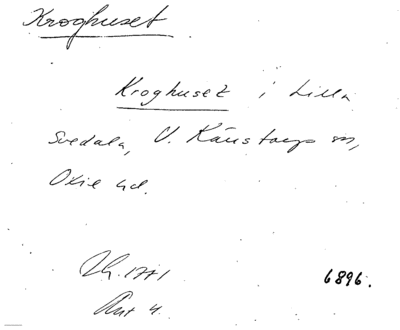 Kroghuset
Kroghuset i Lilla
Svedala, V. Kärrstorps sn,
Oxie hd.
1771
6896.
Ant 4.